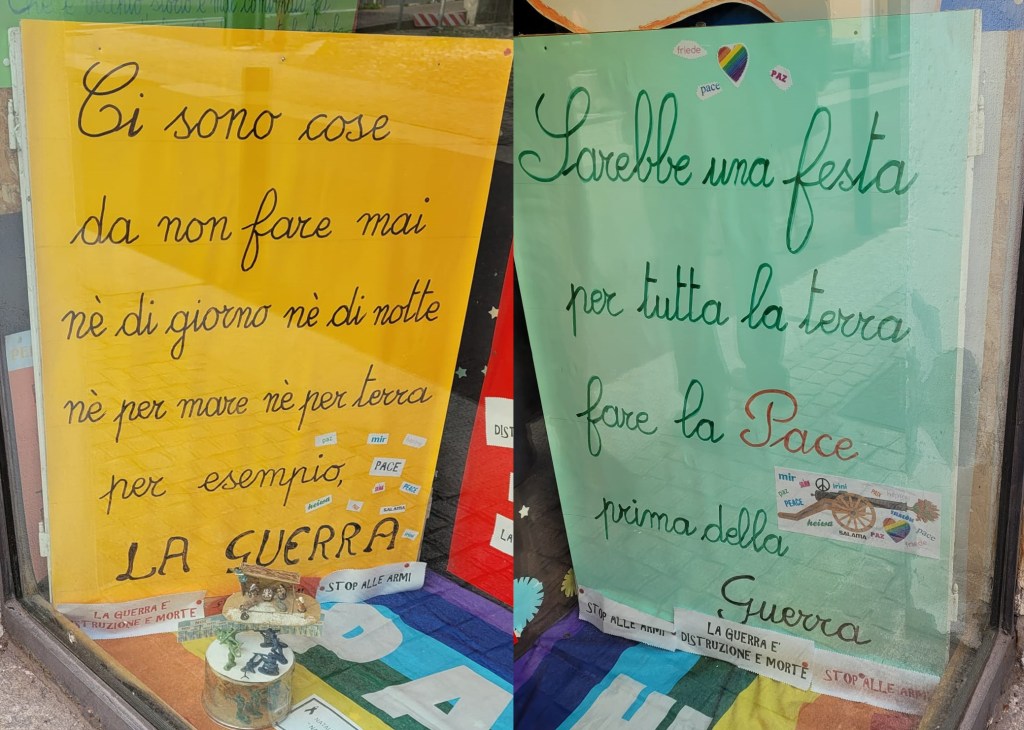 Ci sono cose
da non fare mai
nè di giorno nè di notte
nè per mare nè per terra
per esempio,
LA GUERRA
paz
mir
PACE
PEACE
heiwa
SALAMA
LA GUERRA E'
DISTRUZIONE E MORTE
STOP ALLE ARMI
PA
DIST
LA
friede
pace
PAZ
Sarebbe una festa
per tutta la terra
fare la Pace
prima della
Guerra
mir
irini
paz
PEACE
heiwa
SALAMA
PAZ
pace
STOP ALLE ARMI
LA GUERRA E'
DISTRUZIONE E MORTE
STOP ALLE ARMI